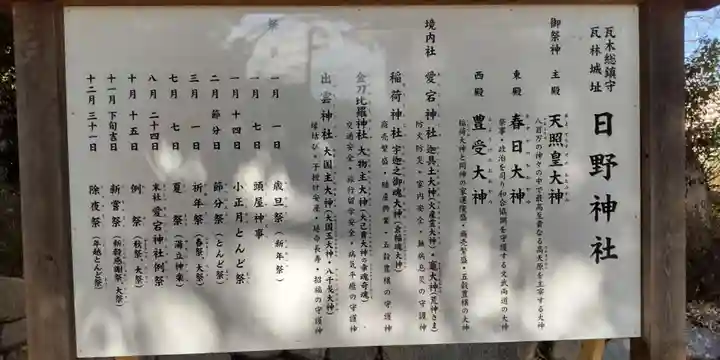 瓦木総鎮守
瓦林城址
日野神社
御祭神
主殿 天照皇大神
八百万の神々の中で最高至貴なる高天原を主宰する大神
東殿 春日大神
祭事・政治を司り和合協調を守護する文武両道の大神
西殿 豊受大神
稲荷大神と同神の家運隆盛・商売繁盛・五穀豊穣の大神
境内社
愛宕神社 迦具土大神(火産霊大神)・竈大神(荒神さま)
防火防災・家内安全・無病息災の守護神
稲荷神社 宇迦之御魂大神(倉稲魂大神)
商売繁盛・殖産興業・五穀豊穣の守護神
金刀比羅神社 大物主大神(大己貴大神の幸魂奇魂)
交通安全・旅行留学安全・病気平癒の守護神
出雲神社 大国主大神(大国玉大神・八千戈大神)
縁結び・子授け安産・延命長寿・招福の守護神
祭
一月 一日 歳旦祭(新年祭)
一月 七日 頭屋神事
一月 十四日 小正月とんど祭
二月 節分日 節分祭(とんど祭)
三月 一日 祈年祭(春祭、大祭)
七月 七日 夏祭(湯立神事)
八月 二十四日 末社愛宕神社例祭
十月 十五日 例祭(秋祭、大祭)
十一月 下旬吉日 新嘗祭(新穀感謝祭、大祭)
十二月 三十一日 除夜祭(年越とんど祭)